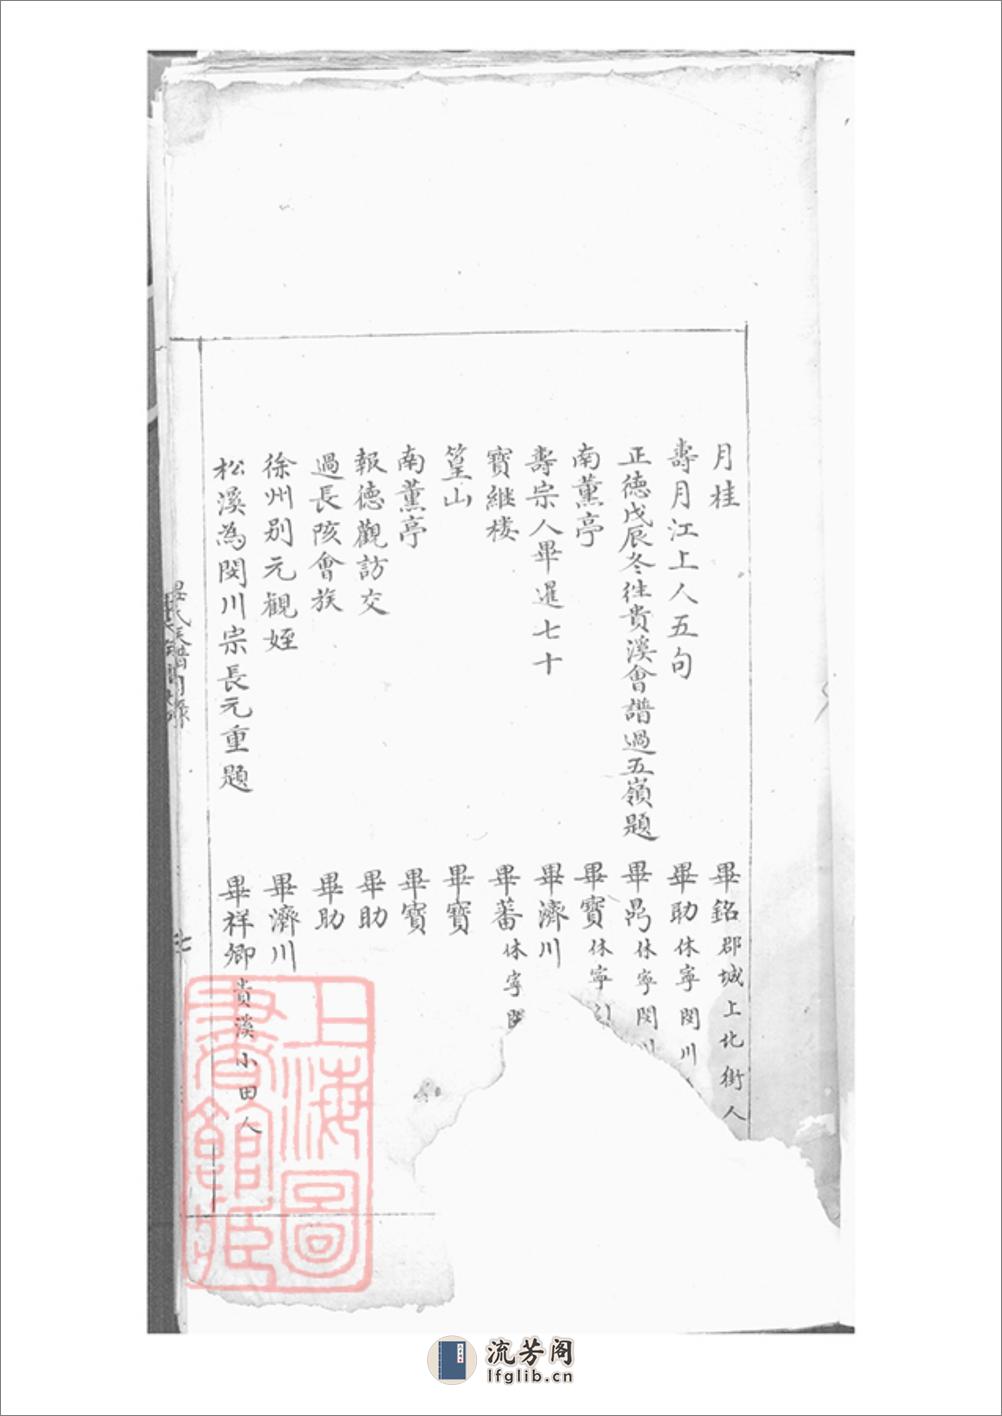 月桂　畢銘郡城上北街人
壽月江上人五句　畢助休寧閔川
正德戊辰冬往貴溪會譜過五嶺題　畢昺休寧閔川
南薰亭　畢寶休寧
壽宗人畢暹七十　畢濟川
寶繼楼　畢蕃休寧閔
篁山　畢寶
南薰亭　畢寶
報德觀訪交　畢助
過長陔會族　畢助
徐州别元觀姪　畢濟川
松溪為閔川宗長元重題　畢祥卿貴溪小田人
上海圖
書館藏
流芳阁
lfglib.cn